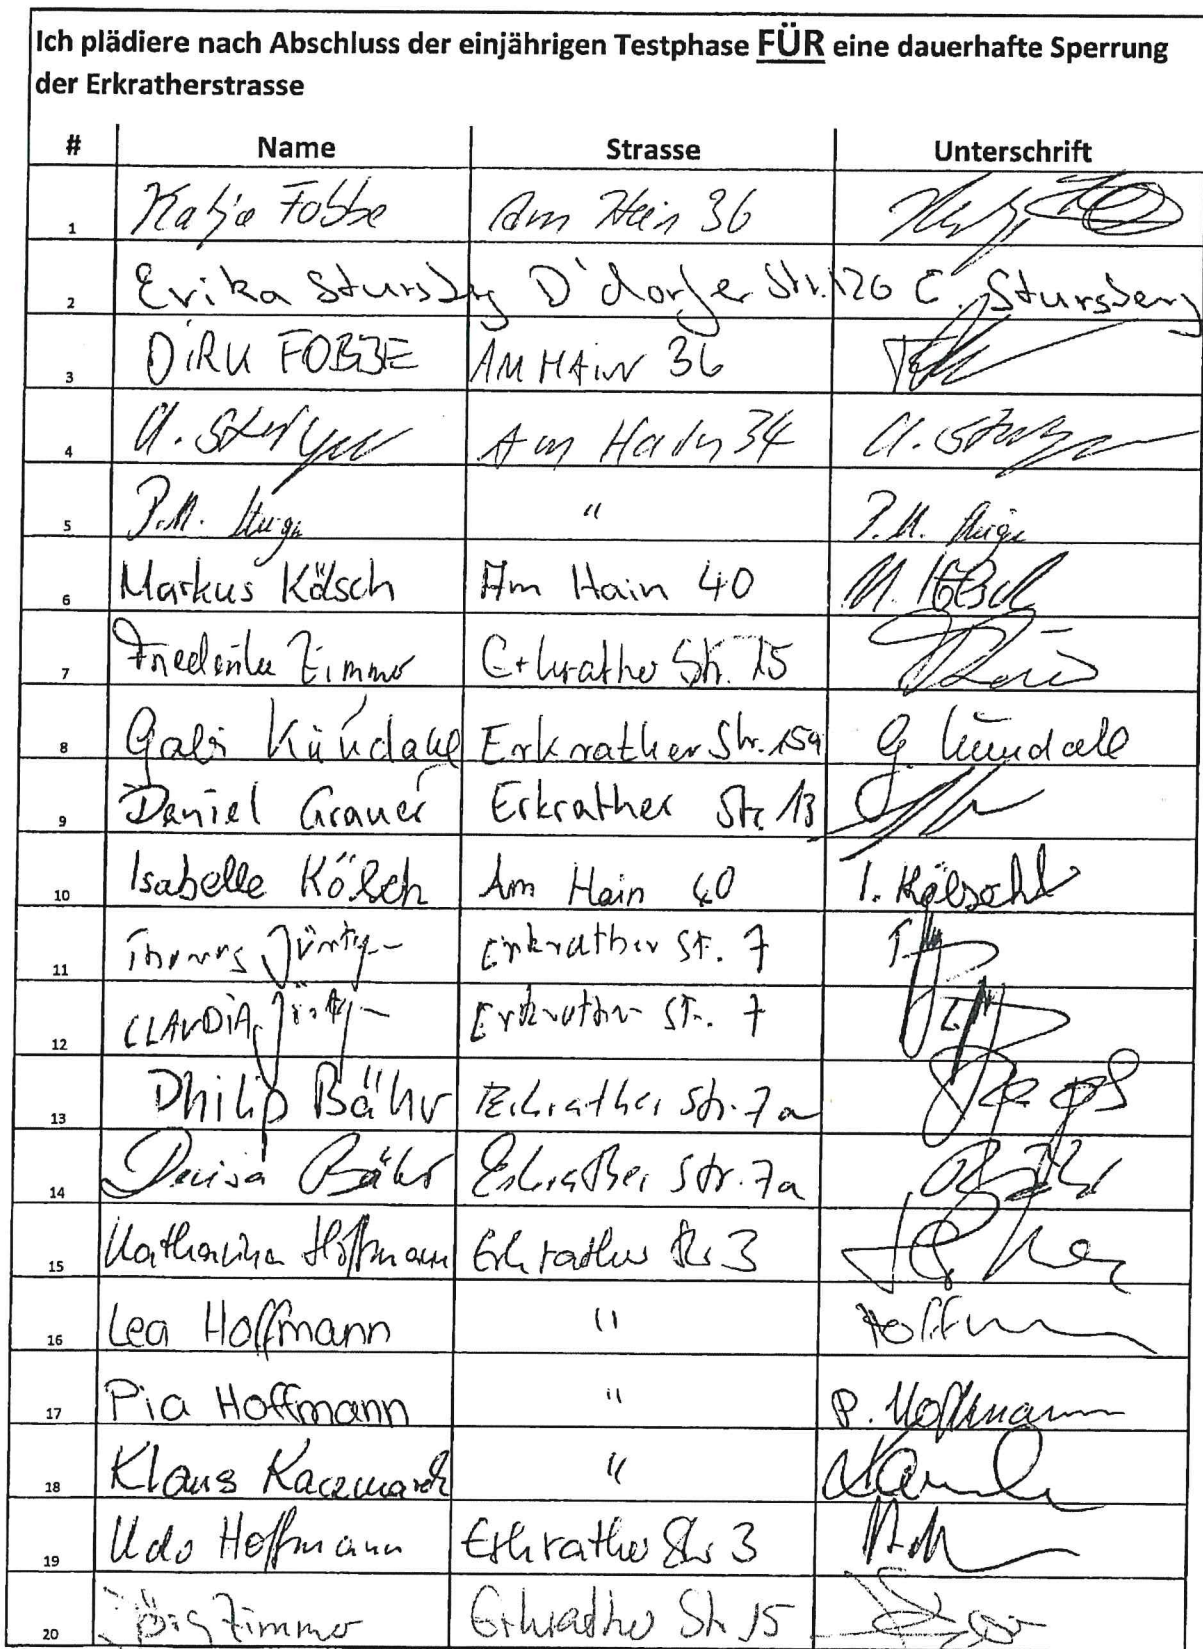 Ich plädiere nach Abschluss der einjährigen Testphase FÜR eine dauerhafte Sperrung
der Erkratherstrasse
# Name Strasse Unterschrift
1 Katja Fobbe Am Hain 36
2 Erika Stursberg D'dorfer Str. 126 E. Stursberg
3 DIRK FOBBE AM HAIN 36
4 Am Hain 34
5 P.M. " P.M.
6 Markus Kölsch Am Hain 40 M. Kölsch
7 Friederike Zimmer Erkrather Str. 15
8 Gabi Kündahl Erkrather Str. 15a G. Kündahl
9 Daniel Grauer Erkrather Str. 13
10 Isabelle Kölsch Am Hain 40 I. Kölsch
11 Thomas Erkrather St. 7
12 CLAUDIA Erkrather St. 7
13 Philip Bähr Erkrather Str. 7a
14 Bähr Erkrather Str. 7a
15 Katharina Hoffmann Erkrather Str 3
16 Lea Hoffmann " Hoffmann
17 Pia Hoffmann " P. Hoffmann
18 Klaus Kaczmarek "
19 Udo Hoffmann Erkrather Str 3
20 Jörg Zimmer Erkrather Str. 15